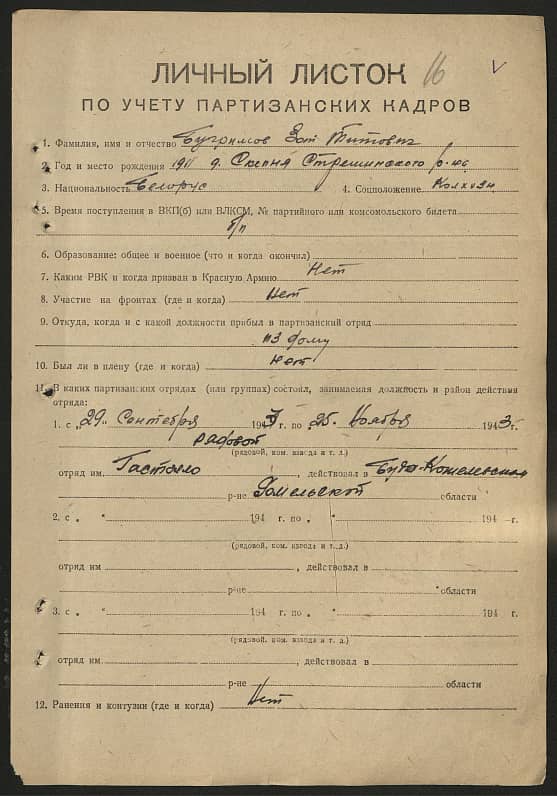 ЛИЧНЫЙ ЛИСТОК 16
ПО УЧЕТУ ПАРТИЗАНСКИХ КАДРОВ
1. Фамилия, имя и отчество Бугримов Зот Титович
2. Год и место рождения 1911 д. Скепня Стрешинского р-на
3. Национальность Белорус 4. Соцположение Колхозн
5. Время поступления в ВКП(б) или ВЛКСМ, № партийного или комсомольского билета
б/п
6. Образование: общее и военное (что и когда окончил)
7. Каким РВК и когда призван в Красную Армию Нет
8. Участие на фронтах (где и когда) Нет
9. Откуда, когда и с какой должности прибыл в партизанский отряд
из дому
10. Был ли в плену (где и когда) нет
11. В каких партизанских отрядах (или группах) состоял, занимаемая должность и район действия
отряда:
1. с „29" Сентября 1943 г. по „25" Ноября 1943 г.
рядовой
(рядовой, ком. взвода и т. д.)
отряд им. Гастелло, действовал в Буда-Кошелевском
р-не Гомельской области
2. с „ " 194 г. по „ " 194 г.
(рядовой, ком. взвода и т. д.)
отряд им , действовал в
р-не области
3. с „ " 194 г. по „ " 194 г.
(рядовой, ком. взвода и т. д.)
отряд им. , действовал в
р-не области
12. Ранения и контузии (где и когда) Нет